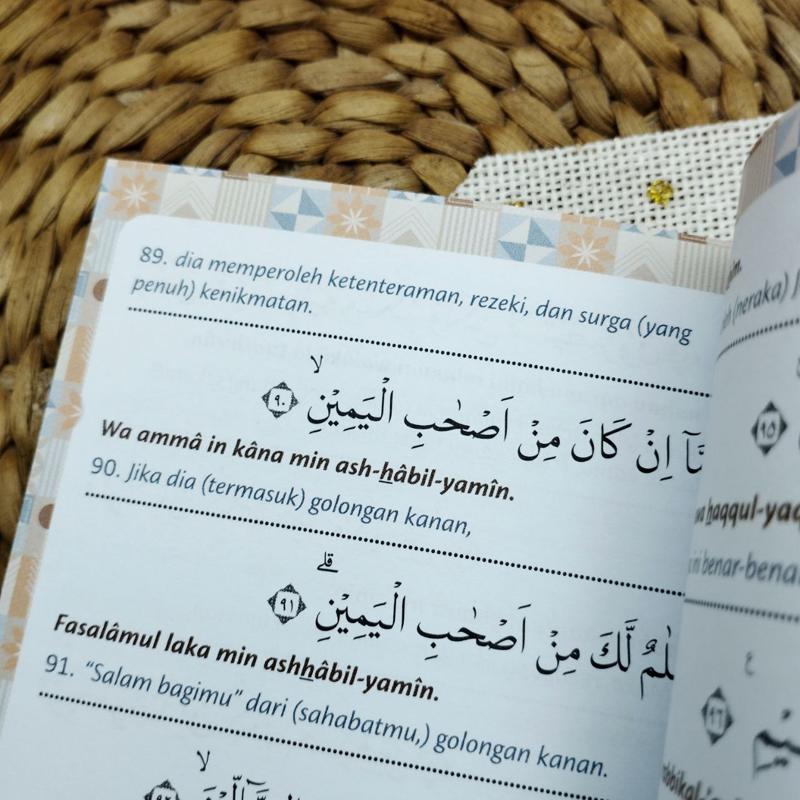 89. dia memperoleh ketenteraman, rezeki, dan surga (yang
penuh) kenikmatan.
اِنْ كَانَ مِنْ اَصْحٰبِ الْيَمِيْنِۙ ٩٠
Wa ammâ in kâna min ash-hâbil-yamîn.
90. Jika dia (termasuk) golongan kanan,
لَّكَ مِنْ اَصْحٰبِ الْيَمِيْنِۗ ٩١
Fasalâmul laka min ashhâbil-yamîn.
91. “Salam bagimu” dari (sahabatmu,) golongan kanan.
(neraka)
٩٥
haqqul-ya
ini benar-bena
٩٦